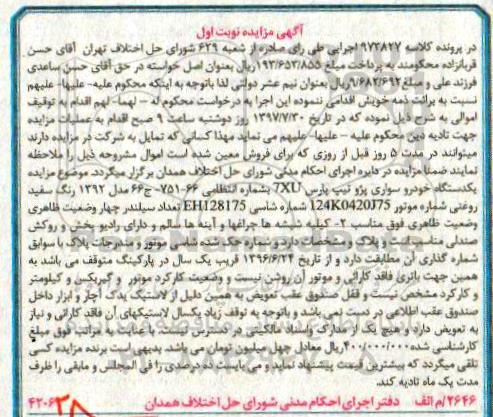 آگهی مزایده نوبت اول
در پرونده کلاسه ۹۷۳۸۲۷ اجرایی طی رای صادره از شعبه ۶۲۹ شورای حل اختلاف تهران آقای حسن
قربانزاده محکومند به پرداخت مبلغ ۱۹۳/۶۵۳/۸۵۵ ریال بعنوان اصل خواسته در حق آقای حسن ساعدی
فرزند علی و مبلغ ۹/۶۸۲/۶۹۲ ریال بعنوان نیم عشر دولتی لذا باتوجه به اینکه محکوم علیه- علیها- علیهم
نسبت به برائت ذمه خویش اقدامی ننموده این اجرا به درخواست محکوم له - لهما- لهم اقدام به توقیف
اموالی به شرح ذیل نموده که در تاریخ ۱۳۹۷/۷/۳۰ روز دوشنبه ساعت ۹ صبح اقدام به عملیات مزایده
جهت تادیه دین محکوم علیه - علیها- علیهم می نماید مهذا کسانی که تمایل به شرکت در مزایده دارند
میتوانند در مدت ۵ روز قبل از روزی که برای فروش معین شده است اموال مشروحه ذیل را ملاحظه
نمایند ضمنا مزایده در دایره اجرای احکام مدنی شورای حل اختلاف همدان برگزار میگردد. موضوع مزایده
یکدستگاه خودرو سواری پژو تیپ پارس 7XU بشماره انتظامی ۶۶-۷۵۱ج۶۶ مدل ۱۳۹۲ رنگ سفید
روغنی شماره موتور 124K0420J75 شماره شاسی EH128175 تعداد سیلندر چهار وضعیت ظاهری
وضعیت ظاهری فوق مناسب ۲- کلیه شیشه ها چراغها و آینه ها سالم و دارای رادیو پخش و روکش
صندلی مناسب است و پلاک و مشخصات دارد و شماره حک شده شاسی موتور و مندرجات پلاک با سوابق
شماره گذاری آن مطابقت دارد و از تاریخ ۱۳۹۶/۶/۲۴ قریب یک سال در پارکینگ متوقف می باشد به
همین جهت باتری فاقد کارائی و موتور آن روشن نیست و وضعیت کارکرد موتور و گیربکس و کیلومتر
و کارکرد مشخص نیست و قفل صندوق عقب تعویض به همین دلیل از لاستیک یدک آچار و ابزار داخل
صندوق عقب اطلاعی در دست نمی باشد و باتوجه به توقف زیاد یکسال لاستیکهای آن فاقد کارائی و نیاز
به تعویض دارد و هیچ یک از مدارک واسناد مالکیتی در دسترس نمی باشد با عنایت به مراتب فوق مبلغ
کارشناسی شده ۴۰۰/۰۰۰/۰۰۰ ریال معادل چهل میلیون تومان می باشد. بدیهی است برنده مزایده کسی
تلقی میگردد که بیشترین قیمت پیشنهاد نماید و می بایست ده درصدی را فی المجلس و مابقی را ظرف
مدت یک ماه تادیه کند.
۲۶۴۶/م الف دفتر اجرای احکام مدنی شورای حل اختلاف همدان
۴۲۰۶۳۸